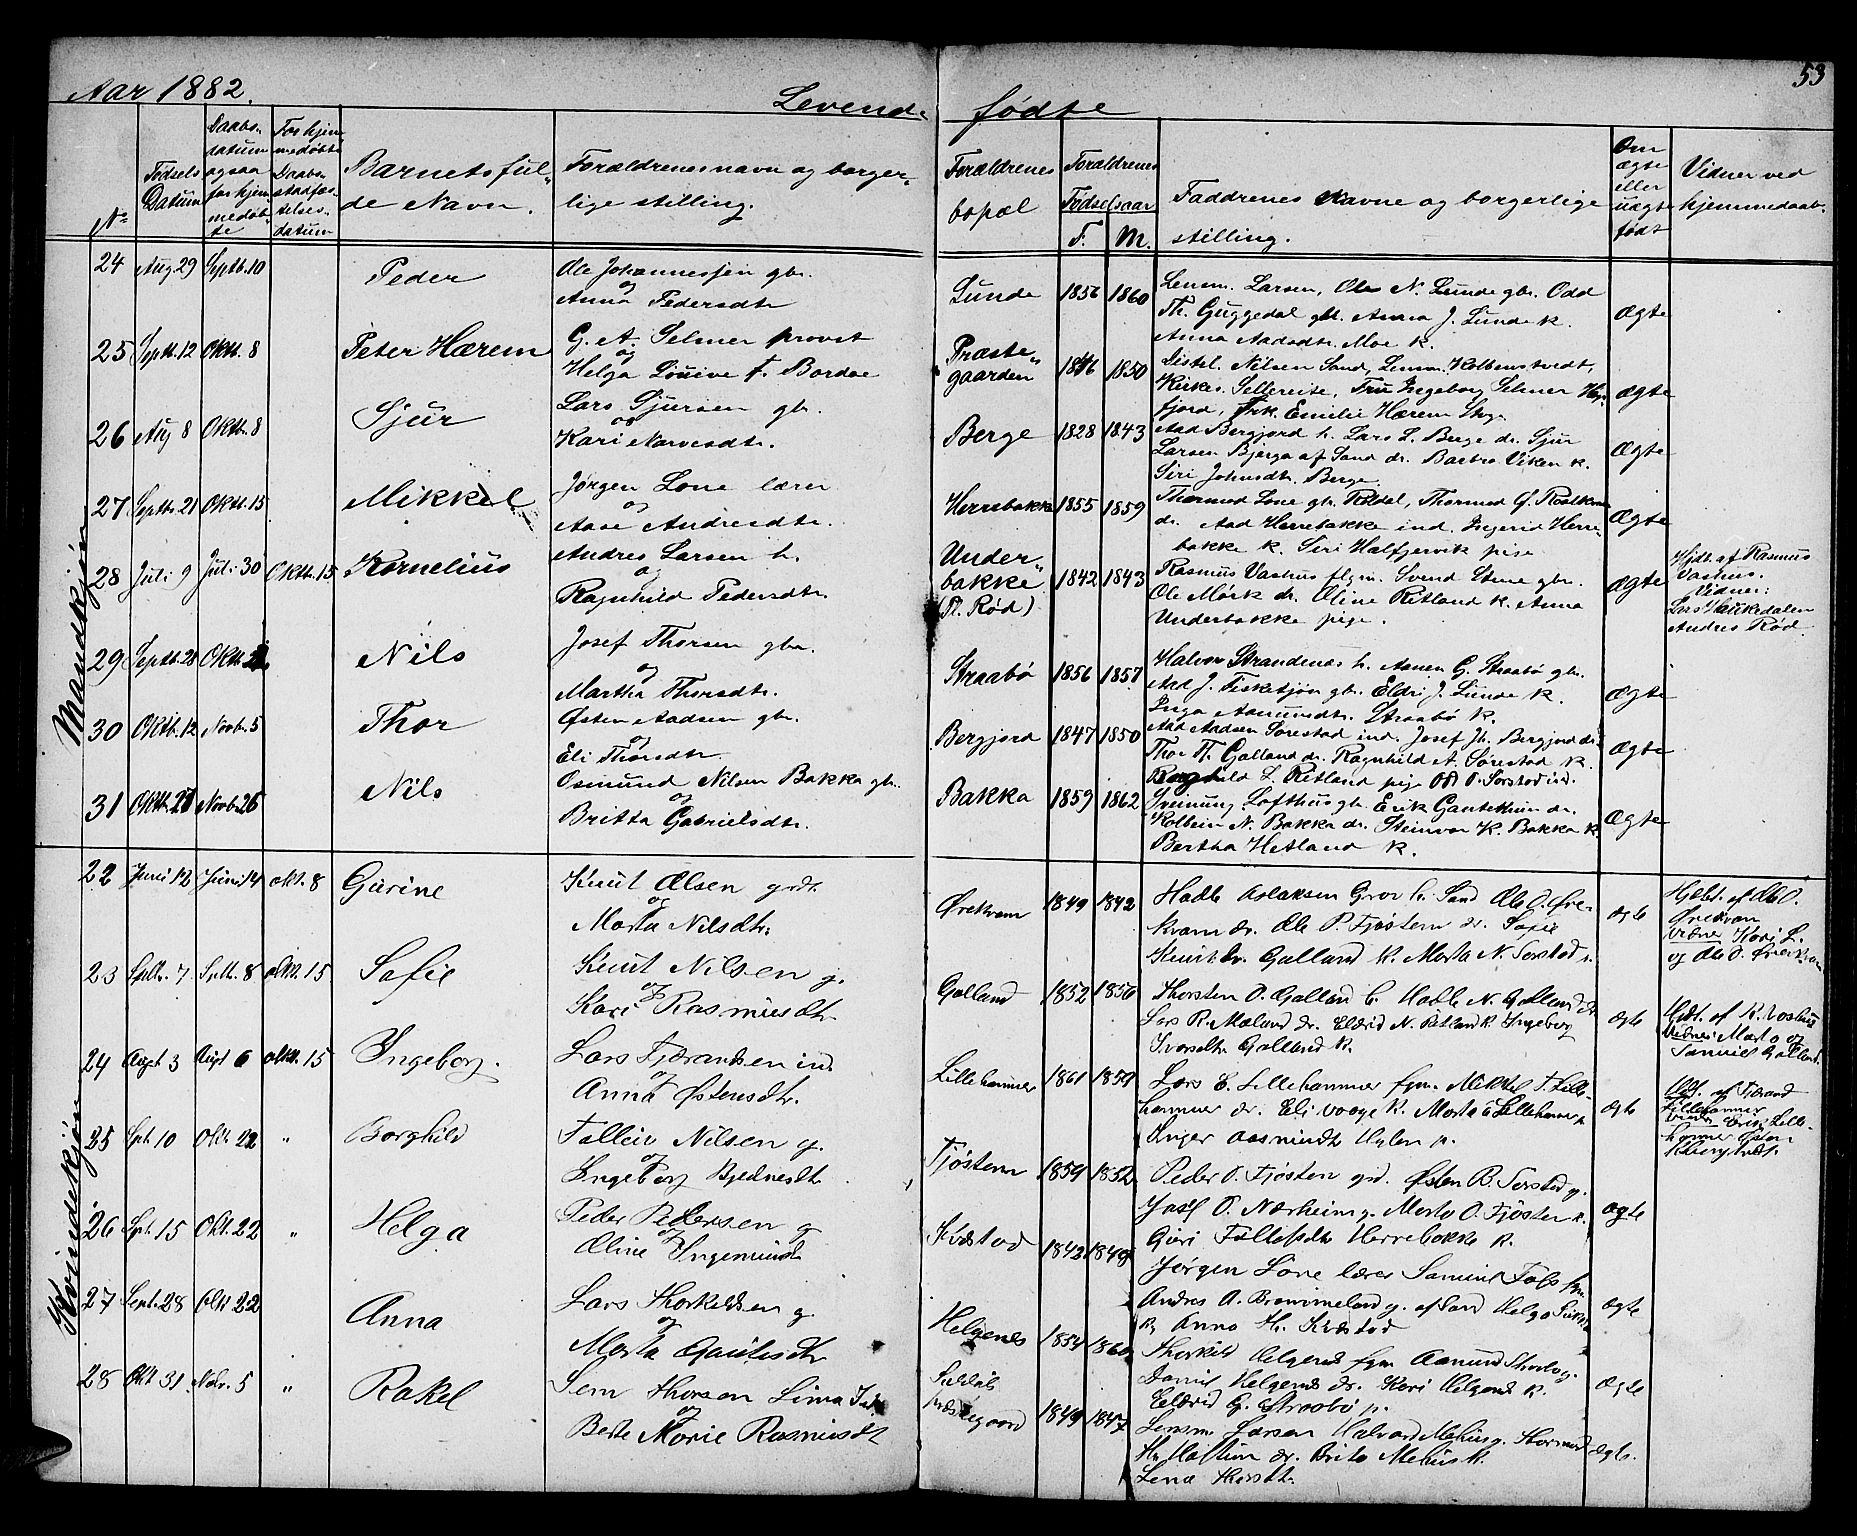 Aar 1882.
Levende fødte
53
No
Fødsels Datum
Daabs- datum ogsaa for hjem medøbte
For hjem medøbte Daabs stadfæs- telses- datum
Barnets ful- de Navn.
Forældrenes navn og borger- lige stilling.
Forældrenes bopæl
Forældrenes Fødselsaar
F. M.
Faddrenes Navne og borgerlige stilling.
Om ægte eller uægte født
Vidner ved hjemmedaab.
Mandkjøn
24 Aug 29 Septb. 10 Peder
Ole Johannessen gbr.
og
Anna Pedersdtr.
Lunde 1856 1860
Lensm. Larsen, Ole N. Lunde gbr. Odd
Th. Guggedal gbr. Anna J. Lunde k.
Anna Aadsdtr. Moe k.
Ægte
25 Septb. 12 Oktb. 8 Peter Hærem
G. A. Selmer provst
og
Helga Louise f. Bordoe
Præste- gaarden 1846 1850
Distel. Nilsen Sand, Lensm. Kolbenstvedt,
Kirkes. Sellereite, Fru Ingeborg Selmer
fjord, Frk. Emilie Hærem
Ægte
26 Aug 8 Oktb. 8 Sjur
Lars Sjursen gbr.
og
Kari Narvesdtr.
Berge 1828 1843
Aad Bergjord h. Lars L. Berge dr. Sjur
Larsen Bjerga af Sand dr. Barbro Viken k.
Siri Johnsdt. Berge
Ægte
27 Septb. 21 Oktb. 15 Mikkel
Jørgen Lone lærer
og
Aase Andresdtr.
Herrebakke 1855 1859
Thormod Lone gbr. Røldal, Thormod G.
dr. Aad Herrebakke ind. Ingerid Herre-
bakke k. Siri Halfjervik pige
Ægte
28 Juli 9 Juli 30 Oktb. 15 Kornelius
Andres Larsen h.
og
Ragnhild Pedersdtr.
Under- bakke (Pl. Rød) 1842 1843
Rasmus Vashus flgm. Svend Stene gbr.
Ole Mørk dr. Oline Ritland k. Anna
Underbakke pige.
Ægte
Hjdb. af Rasmus
Vashus.
Vidner:
Lars Haukedalen
Andres Rød.
29 Septb. 28 Oktb. Nils
Josef Thorsen gbr.
og
Martha Thorsdtr.
Straabø 1856 1857
Halvor Strandenæs h. Aanen G. Straabø gbr.
Aad J. Fisketjøn gbr. Eldri J. Lunde k.
Inga Aamundtr. Straabø k.
Ægte
30 Oktb. 12 Novb. 5 Thor
Østen Aadsen gbr.
og
Eli Thorsdtr.
Bergjord 1847 1850
Aad Aadsen Sørestad ind. Josef Jh. Bergjord dr.
Thor Th. Galland dr. Ragnhild A. Sørestad k.
Ragnhild L. Ritland pige
Ægte
31 Oktb. Novb. 26 Nils
Osmund Nilsen Bakka gbr.
og
Britta Gabrielsdtr.
Bakka 1859 1862
Odd O. Sørstad ind.
Sveinung Lofthus gbr. Erik Gautethun dr.
Kolbein N. Bakka dr. Steinvor K. Bakka k.
Bertha Hetland k.
Ægte
Kvindekjøn
22 Juni 12 Juni 14 okt. 8 Gurine
Knut Olsen grdr.
og
Marta Nilsdtr.
Ørekvam 1849 1842
Hadle Aslaksen Grov h. Sand Ole O. Øre-
kvam dr. Ole P. Fjøstern dr. Sofie
Knutsdr. Galland k. Marta N. Sørstad
ægte
Hjdbt. af Ole O.
Ørekvam
vidner Kari L.
og Ole O. Ørekvam
23 Sptb. 7 Sptb. 8 oktb. 15 Sofie
Knut Nilsen g.
og
Kari Rasmusdtr.
Galland 1852 1856
Thorsten O. Galland h. Hadle N. Galland dr.
Lars R. Mæland dr. Eldrid N. Ritland k. Ingeborg
Ivarsdtr. Galland k.
ægte
Hjdt. af K. Vashus
vidner Marta og
Samuel Galland.
24 Augst 3 Augst 6 oktb. 15 Ingeborg.
Lars Fjærandsen ind
og
Anna Østensdtr.
Lillehammer 1861 1857
Lars E. Lillehammer fgm. Mikkel T. Lille-
hammer dr. Eli Vaage k. Marta Lillehammer
Inger Aasmundt Hylen p.
ægte
Hjdt. af Fjærand
Lillehammer
vidner Erik Lille-
hammer Østen
25 Spt. 10 Okt. 22 " Borghild
Folleiv Nilsen g.
og
Ingeborg Bjednesdtr
Fjøstern 1854 1852
Peder O. Fjøsten grd. Østen B. Sørstad g.
Josef O. Nærheim g. Marta O. Fjøsten k.
Guri Folleifsdtr Herrebakke k.
ægte
26 Spt. 15 Okt. 22 " Helga
Peder Pedersen g
og
Oline Ingemundt
Kvæstad 1842 1848
Jørgen Lone lærer Samuel
Andres A. Brommeland g. af Sand Helga
Anna Th. Kvæstad
ægte
27 Sept. 28 Okt 22 Anna
Lars Thorkildsen g.
og
Marta Gautesdtr
Helgenes 1854 1860
Thorkild Helgenes fgm Aamund Straabø g.
Daniel Helgenes dr. Kari Helgenes k.
Eldrid G. Straabø p.
ægte
28 Okt 31 Novb. 5 " Rakel
Sem Thorsen Lima
og
Berte Marie Rasmusdt
Suldals præstegaard 1849 1847
Lensm. Larsen Halvard Mehus g. Thormod
Hr. Hoftun dr. Brita Mehus k.
Lena Thorsdt.
ægte.